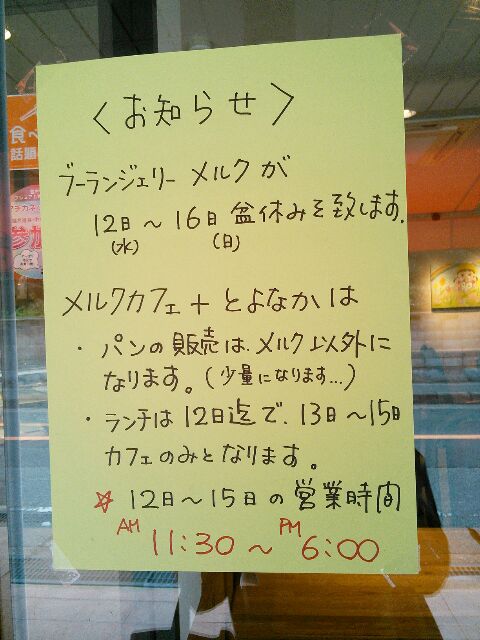 〈お知らせ〉
ブーランジェリー メルクが
12日～16日 盆休みを致します.
(水) (日)
メルクカフェ+とよなかは
・パンの販売は、メルク以外に
なります。(少量になります…)
・ランチは12日迄で、13日～15日
カフェのみとなります。
☆12日～15日の営業時間
AM 11:30～PM 6:00
食べ
話題
参加